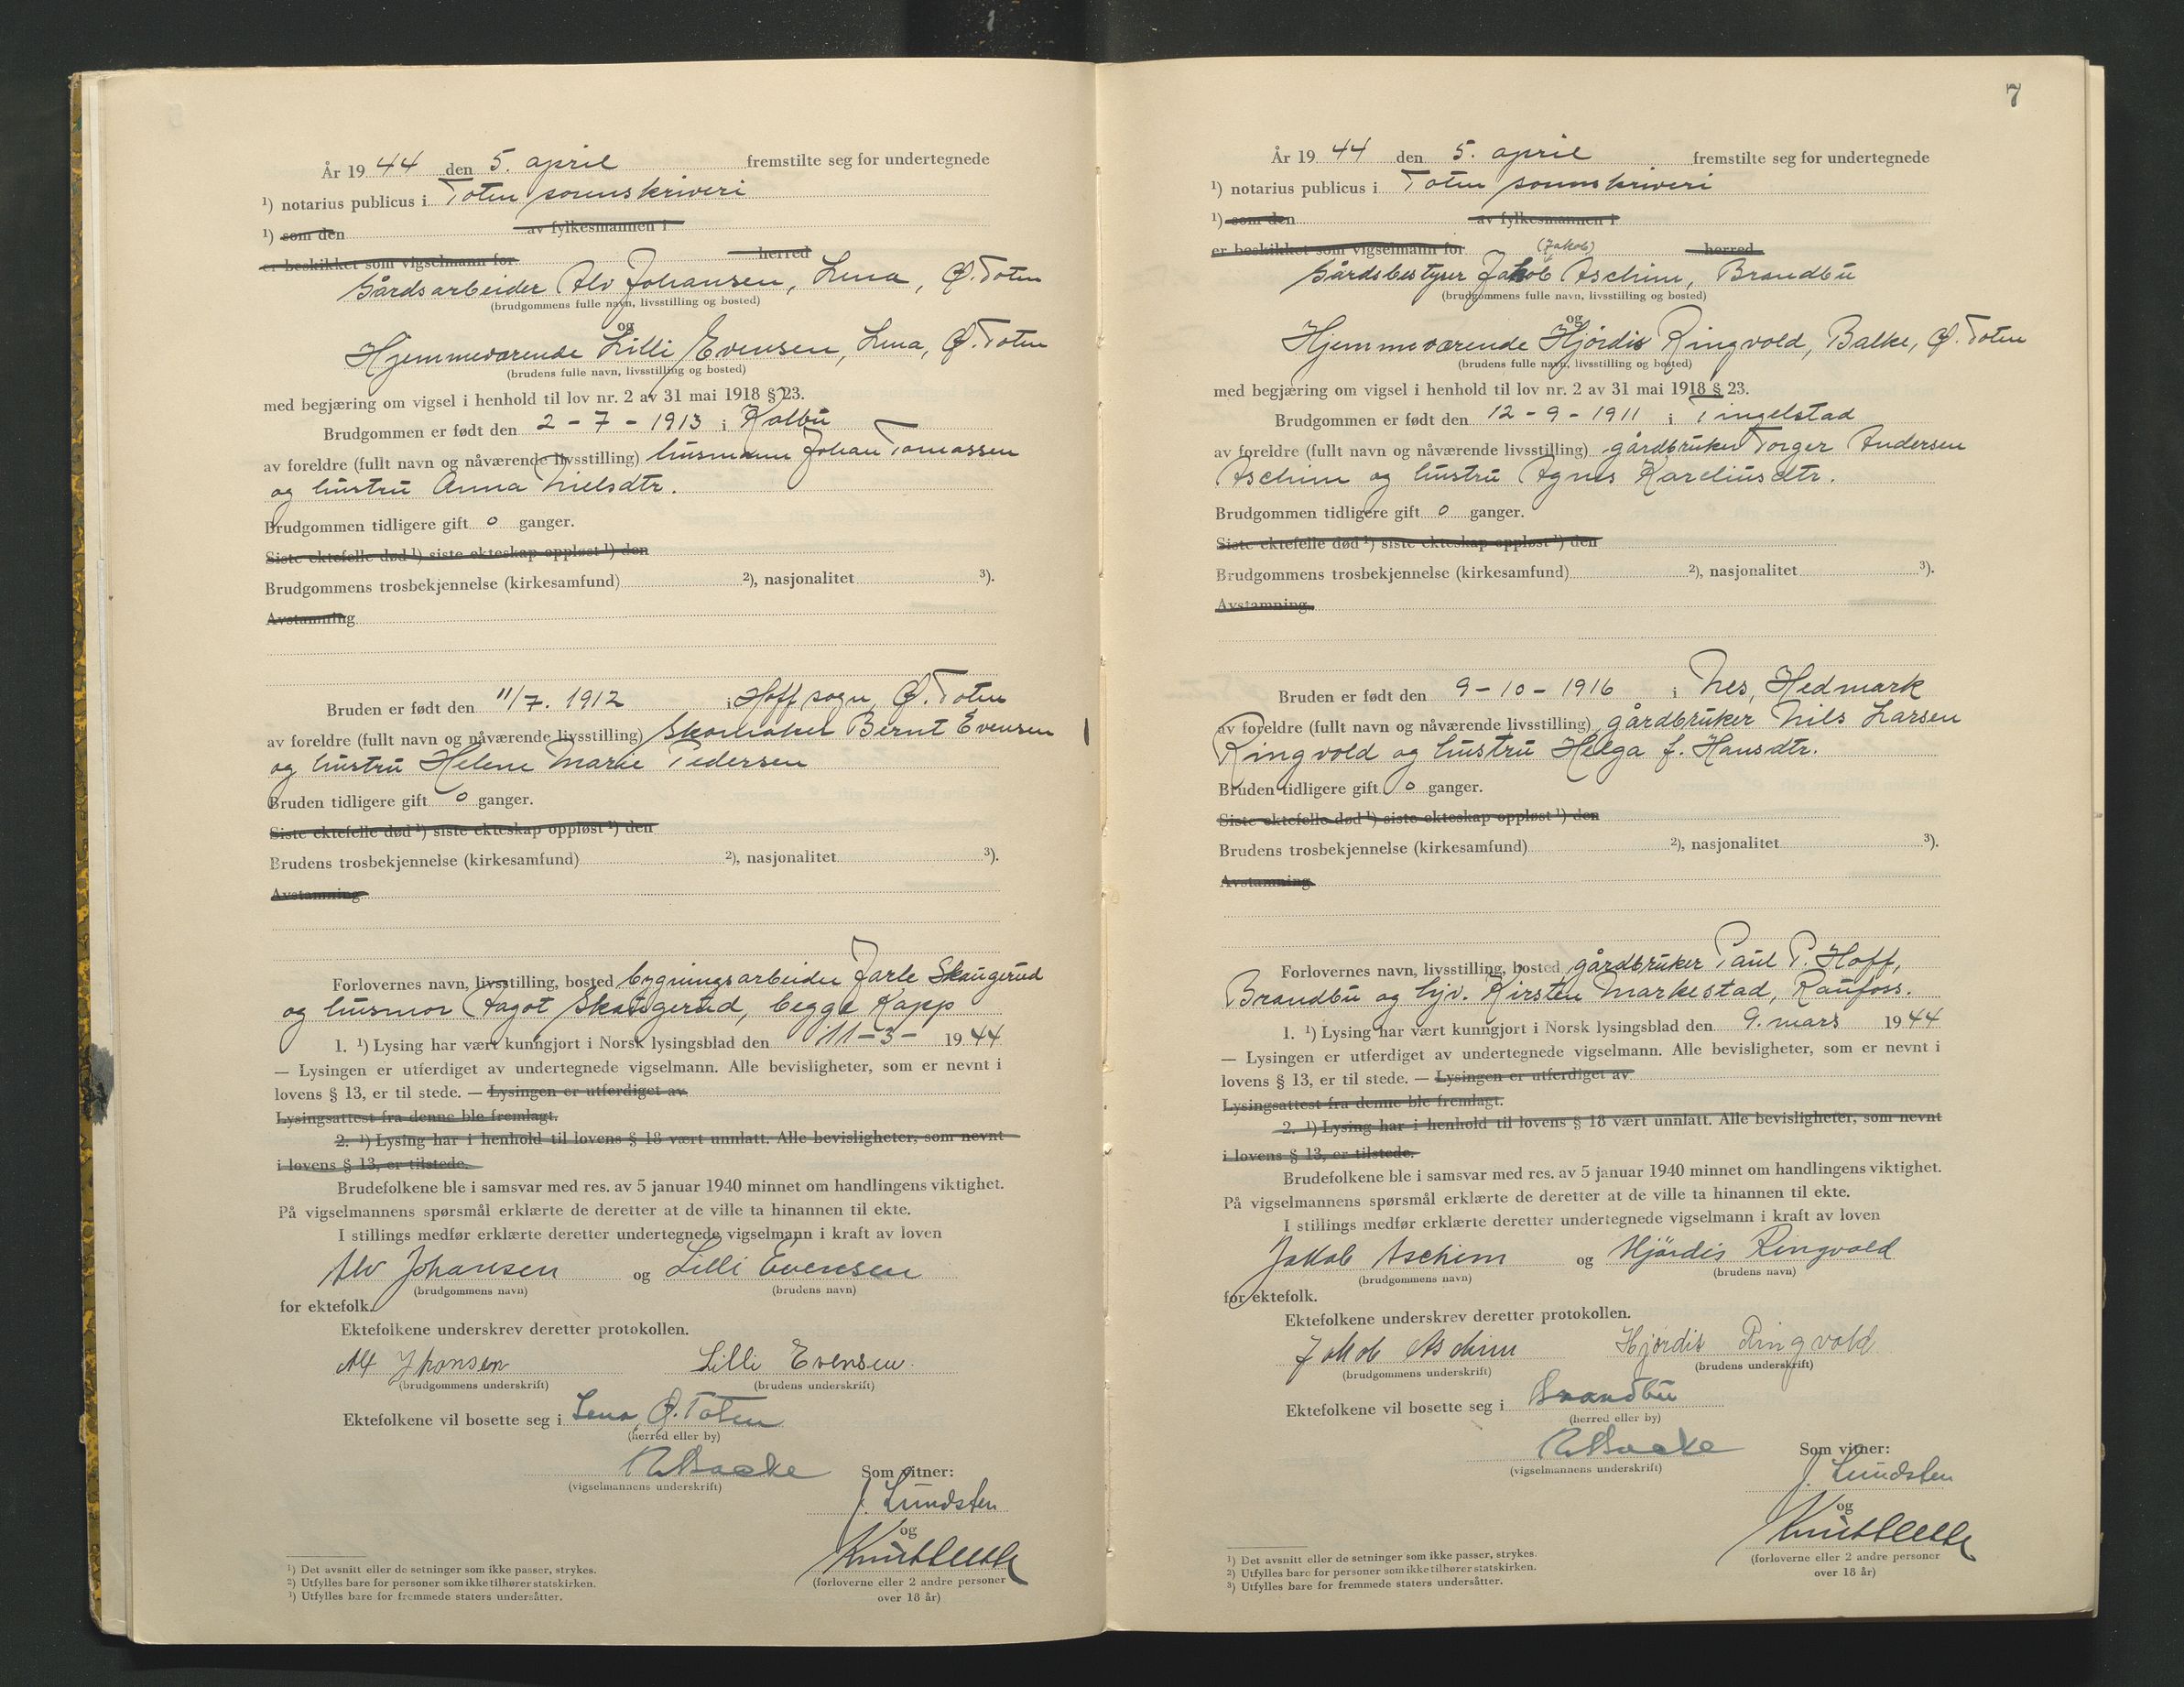 År 1944 den 5. april fremstilte seg for undertegnede
¹) notarius publicus i Toten sorenskriveri
¹) som den av fylkesmannen i
er beskikket som vigselmann for herred
Gårdsarbeider Alv Johansen, Lena, Ø. Toten
(brudgommens fulle navn, livsstilling og bosted)
og
Hjemmeværende Lilli Evensen, Lena, Ø. Toten
(brudens fulle navn, livsstilling og bosted)
med begjæring om vigsel i henhold til lov nr. 2 av 31 mai 1918 § 23.
Brudgommen er født den 2 - 7 - 1913 i Kolbu
av foreldre (fullt navn og nåværende livsstilling) husmann Johan Tomassen
og hustru Anna Nielsdtr.
Brudgommen tidligere gift 0 ganger.
Siste ektefelle død ¹) siste ekteskap oppløst ¹) den
Brudgommens trosbekjennelse (kirkesamfund) ²), nasjonalitet ³).
Avstamning
Bruden er født den 11/7. 1912 i Hoff sogn, Ø. Toten
av foreldre (fullt navn og nåværende livsstilling) Bernt Evensen
og hustru Helene Marie Pedersen
Bruden tidligere gift 0 ganger.
Siste ektefelle død ¹) siste ekteskap oppløst ¹) den
Brudens trosbekjennelse (kirkesamfund) ²), nasjonalitet ³).
Avstamning
Forlovernes navn, livsstilling, bosted bygningsarbeider Jarle Skaugerud
og husmor Aagot Skaugerud, begge Kapp
1. ¹) Lysing har vært kunngjort i Norsk lysingsblad den 11 - 3 - 1944
— Lysingen er utferdiget av undertegnede vigselmann. Alle bevisligheter, som er nevnt i
lovens § 13, er til stede. — Lysingen er utferdiget av
Lysingsattest fra denne ble fremlagt.
2. ¹) Lysing har i henhold til lovens § 18 vært unnlatt. Alle bevisligheter, som nevnt
i lovens § 13, er tilstede.
Brudefolkene ble i samsvar med res. av 5 januar 1940 minnet om handlingens viktighet.
På vigselmannens spørsmål erklærte de deretter at de ville ta hinannen til ekte.
I stillings medfør erklærte deretter undertegnede vigselmann i kraft av loven
Alv Johansen og Lilli Evensen
(brudgommens navn) (brudens navn)
for ektefolk.
Ektefolkene underskrev deretter protokollen.
Alf Jhansen Lilli Evensen.
(brudgommens underskrift) (brudens underskrift)
Ektefolkene vil bosette seg i Lena, Ø. Toten
(herred eller by)
Som vitner:
(vigselmannens underskrift)
J. Lundsten
og
Knut
(forloverne eller 2 andre personer
over 18 år)
¹) Det avsnitt eller de setninger som ikke passer, strykes.
²) Utfylles bare for personer som ikke tilhører statskirken.
³) Utfylles bare for fremmede staters undersåtter.
7
År 1944 den 5. april fremstilte seg for undertegnede
¹) notarius publicus i Toten sorenskriveri
¹) som den av fylkesmannen i
er beskikket som vigselmann for herred
(Jakob)
Gårdsbestyrer Jakob Aschim, Brandbu
(brudgommens fulle navn, livsstilling og bosted)
og
Hjemmeværende Hjördis Ringvold, Balke, Ø. Toten
(brudens fulle navn, livsstilling og bosted)
med begjæring om vigsel i henhold til lov nr. 2 av 31 mai 1918 § 23.
Brudgommen er født den 12 - 9 - 1911 i Tingelstad
av foreldre (fullt navn og nåværende livsstilling) gårdbruker Torger Andersen
Aschim og hustru Agnes Kareliusdtr.
Brudgommen tidligere gift 0 ganger.
Siste ektefelle død ¹) siste ekteskap oppløst ¹) den
Brudgommens trosbekjennelse (kirkesamfund) ²), nasjonalitet ³).
Avstamning
Bruden er født den 9 - 10 - 1916 i Nes, Hedmark
av foreldre (fullt navn og nåværende livsstilling) gårdbruker Nils Larsen
Ringvold og hustru Helga f. Hansdtr.
Bruden tidligere gift 0 ganger.
Siste ektefelle død ¹) siste ekteskap oppløst ¹) den
Brudens trosbekjennelse (kirkesamfund) ²), nasjonalitet ³).
Avstamning
Forlovernes navn, livsstilling, bosted gårdbruker Paul P. Hoff,
Brandbu og hjv. Kirsten Markestad, Raufoss.
1. ¹) Lysing har vært kunngjort i Norsk lysingsblad den 9. mars 1944
— Lysingen er utferdiget av undertegnede vigselmann. Alle bevisligheter, som er nevnt i
lovens § 13, er til stede. — Lysingen er utferdiget av
Lysingsattest fra denne ble fremlagt.
2. ¹) Lysing har i henhold til lovens § 18 vært unnlatt. Alle bevisligheter, som nevnt
i lovens § 13, er tilstede.
Brudefolkene ble i samsvar med res. av 5 januar 1940 minnet om handlingens viktighet.
På vigselmannens spørsmål erklærte de deretter at de ville ta hinannen til ekte.
I stillings medfør erklærte deretter undertegnede vigselmann i kraft av loven
Jakob Aschim og Hjördis Ringvold
(brudgommens navn) (brudens navn)
for ektefolk.
Ektefolkene underskrev deretter protokollen.
Jakob Aschim Hjördis Ringvold
(brudgommens underskrift) (brudens underskrift)
Ektefolkene vil bosette seg i Brandbu
(herred eller by)
Som vitner:
(vigselmannens underskrift)
J. Lundsten
og
Knut
(forloverne eller 2 andre personer
over 18 år)
¹) Det avsnitt eller de setninger som ikke passer, strykes.
²) Utfylles bare for personer som ikke tilhører statskirken.
³) Utfylles bare for fremmede staters undersåtter.